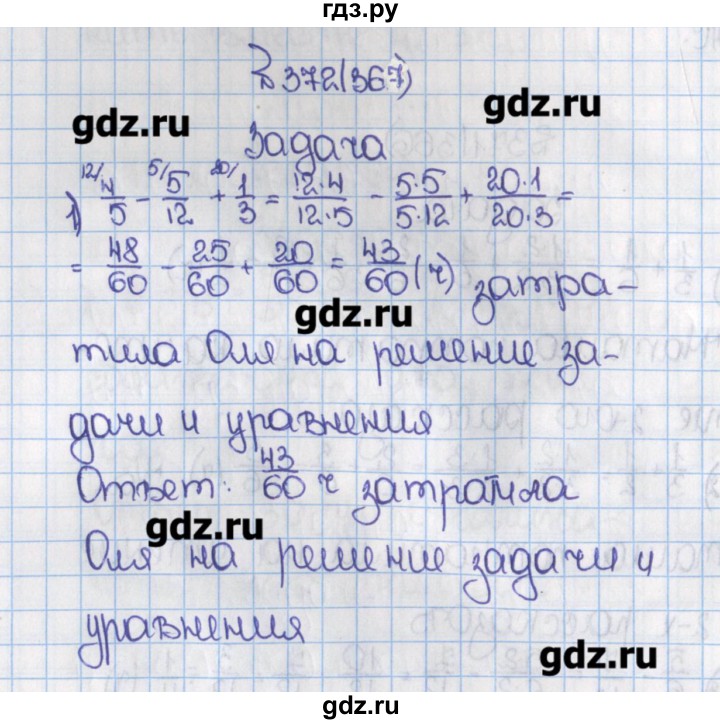 гдз.ру
№ 372(367)
gdz.ru
gdz.ru
Задача
1) 12/ 4/5 - 5/ 5/12 + 20/ 1/3 = 12·4/12·5 - 5·5/5·12 + 20·1/20·3 =
= 48/60 - 25/60 + 20/60 = 43/60 (ч) затра-
gdz.ru
тила Оля на решение за-
дачи и уравнения
Ответ: 43/60 ч затратила
gdz.ru
Оля на решение задачи и
уравнения
gdz.ru
gdz.ru